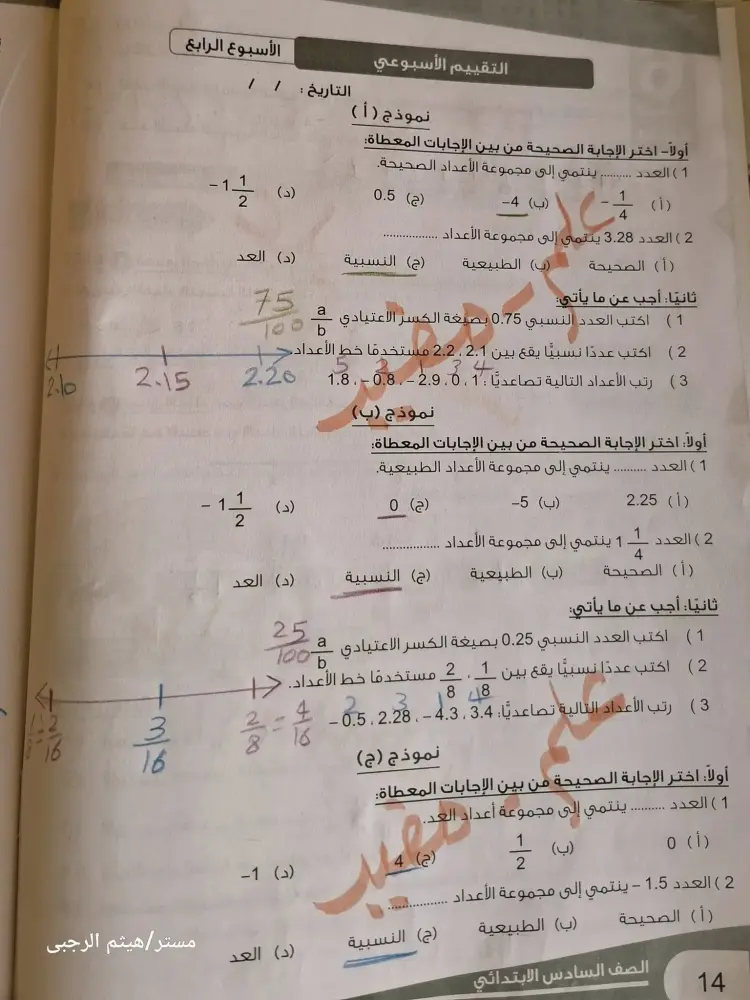 الأسبوع الرابع
التقييم الأسبوعي
التاريخ : / /
نموذج ( أ )
أولاً- اختر الإجابة الصحيحة من بين الإجابات المعطاة:
1 ) العدد .......... ينتمي إلى مجموعة الأعداد الصحيحة.
( أ ) - 1/4 (ب) 4– (ج) 0.5 (د) - 1 1/2
2 ) العدد 3.28 ينتمي إلى مجموعة الأعداد .................
( أ ) الصحيحة (ب) الطبيعية (ج) النسبية (د) العد
ثانيًا: أجب عن ما يأتي:
1 ) اكتب العدد النسبي 0.75 بصيغة الكسر الاعتيادي a/b 75/100
2 ) اكتب عددًا نسبيًّا يقع بين 2.1 ، 2.2 مستخدمًا خط الأعداد.
2.10 2.15 2.20
5 2 1 3 4
3 ) رتب الأعداد التالية تصاعديًّا: 1 ، 0 ، 2.9 – ، 0.8 – ، 1.8
نموذج (ب)
أولاً: اختر الإجابة الصحيحة من بين الإجابات المعطاة:
1 ) العدد .......... ينتمي إلى مجموعة الأعداد الطبيعية.
( أ ) 2.25 (ب) 5– (ج) 0 (د) - 1 1/2
2 ) العدد 1 1/4 ينتمي إلى مجموعة الأعداد .................
( أ ) الصحيحة (ب) الطبيعية (ج) النسبية (د) العد
ثانيًا: أجب عن ما يأتي:
1 ) اكتب العدد النسبي 0.25 بصيغة الكسر الاعتيادي a/b 25/100
2 ) اكتب عددًا نسبيًّا يقع بين 1/8 ، 2/8 مستخدمًا خط الأعداد.
2/16 3/16 2/8 = 4/16
2 3 1 4
3 ) رتب الأعداد التالية تصاعديًّا: 3.4 ، 4.3 – ، 2.28 ، 0.5 –
نموذج (ج)
أولاً: اختر الإجابة الصحيحة من بين الإجابات المعطاة:
1 ) العدد .......... ينتمي إلى مجموعة أعداد العد.
( أ ) 0 (ب) 1/2 (ج) 4 (د) 1–
2 ) العدد 1.5 – ينتمي إلى مجموعة الأعداد .................
( أ ) الصحيحة (ب) الطبيعية (ج) النسبية (د) العد
علم - مفيد
علم - مفيد
مستر/هيثم الرجبى
الصف السادس الابتدائي
14